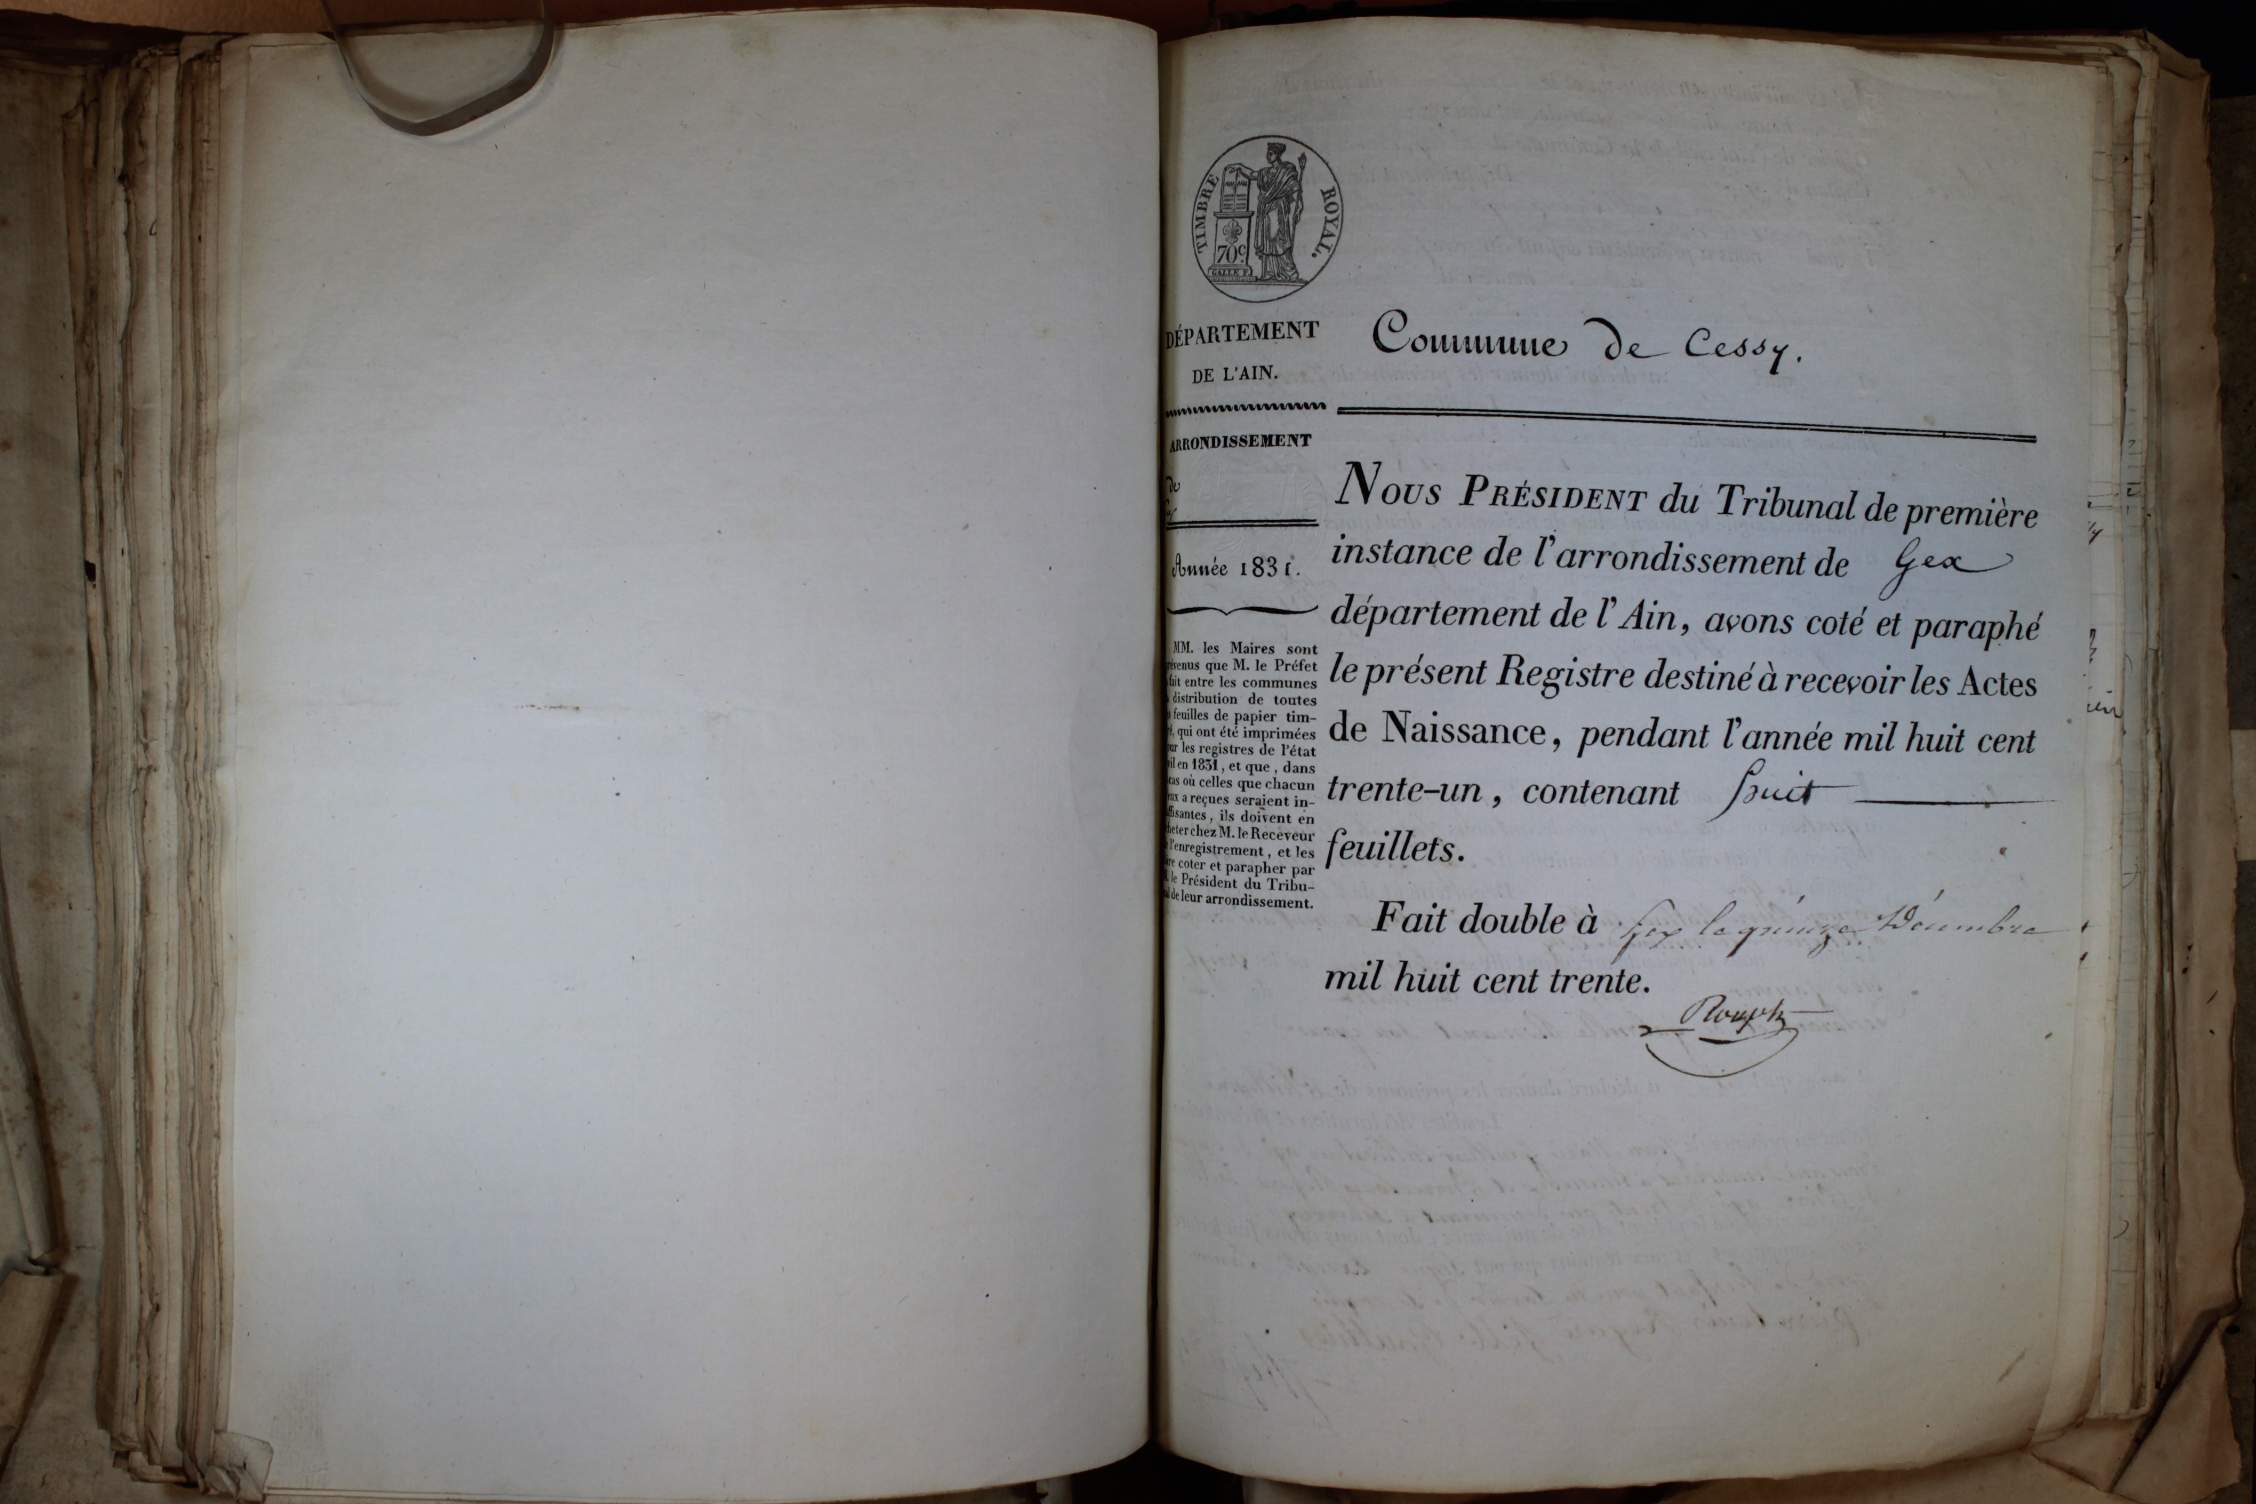 TIMBRE ROYAL.
70c
GALLE F.
DÉPARTEMENT
DE L'AIN.
ARRONDISSEMENT
de
Année 1831.
MM. les Maires sont
prévenus que M. le Préfet
fait entre les communes
distribution de toutes
feuilles de papier tim-
qui ont été imprimées
pour les registres de l'état
civil en 1831, et que, dans
cas où celles que chacun
d'eux a reçues seraient in-
suffisantes, ils doivent en
acheter chez M. le Receveur
de l'enregistrement, et les
faire coter et parapher par
M. le Président du Tribu-
nal de leur arrondissement.
Commune de Cessy.
NOUS PRÉSIDENT du Tribunal de première
instance de l'arrondissement de Gex
département de l'Ain, avons coté et paraphé
le présent Registre destiné à recevoir les Actes
de Naissance, pendant l'année mil huit cent
trente-un, contenant huit
feuillets.
Fait double à Gex le quinze Décembre
mil huit cent trente.